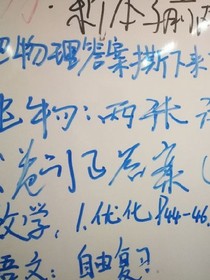 物理答案撕下来
生物:两张
卷订正答案(
数学:1.优化P44-46
语文:自由复习